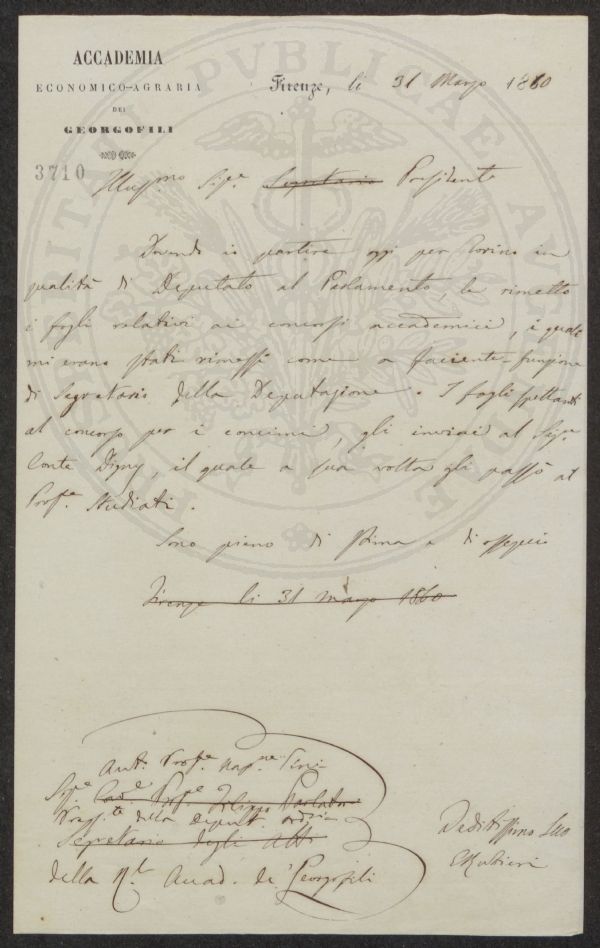 ACCADEMIA
ECONOMICO-AGRARIA
DEI
GEORGOFILI
3710
Firenze, li 31 Marzo 1860
Illussmo Sige. Segretario Presidente
Dovendo io partire oggi per Torino in
qualità di Deputato al Parlamento, le rimetto
i fogli relativi ai concorsi accademici, i quali
mi erano stati rimessi come a facente funzione
di Segretario della Deputazione. I fogli spettanti
al concorso per i concimi, gli inviai al Sige.
Conte Digny, il quale a sua volta gli passò al
Profe. Studiati.
Sono pieno di stima e di ossequio
Firenze li 31 marzo 1860
Sige. Cave. Profe. Filippo Parlatore
della Deput. ordia
Segretario degli Atti
della Rl. Accad. de' Georgofili
Deditissimo Suo